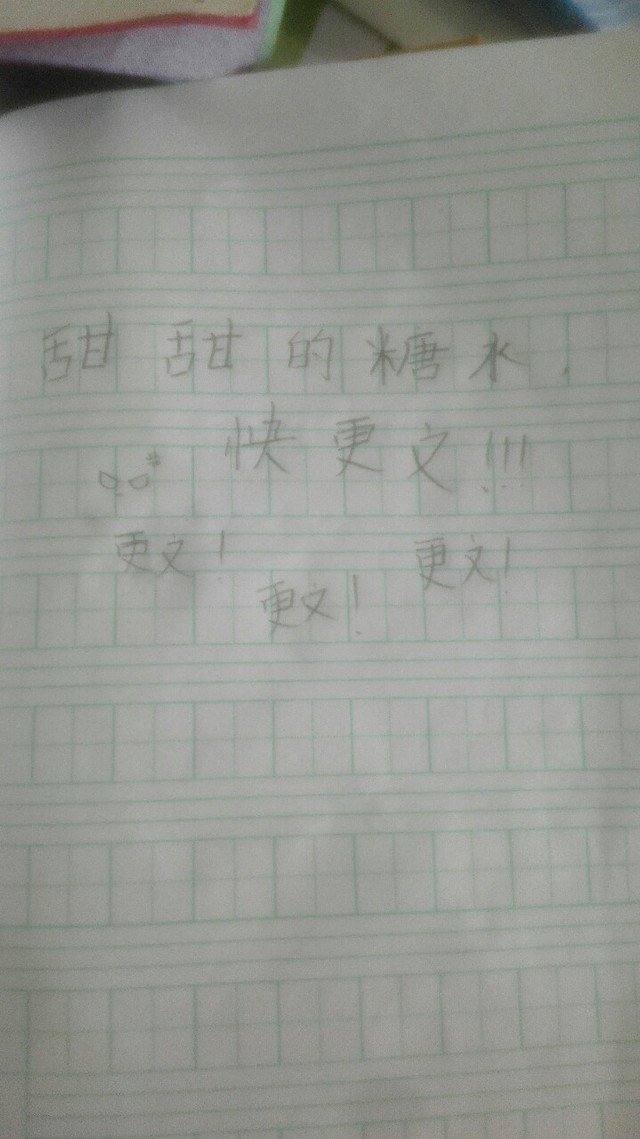 甜甜的糖水，
快更文!!!
更文！
更文！
更文！